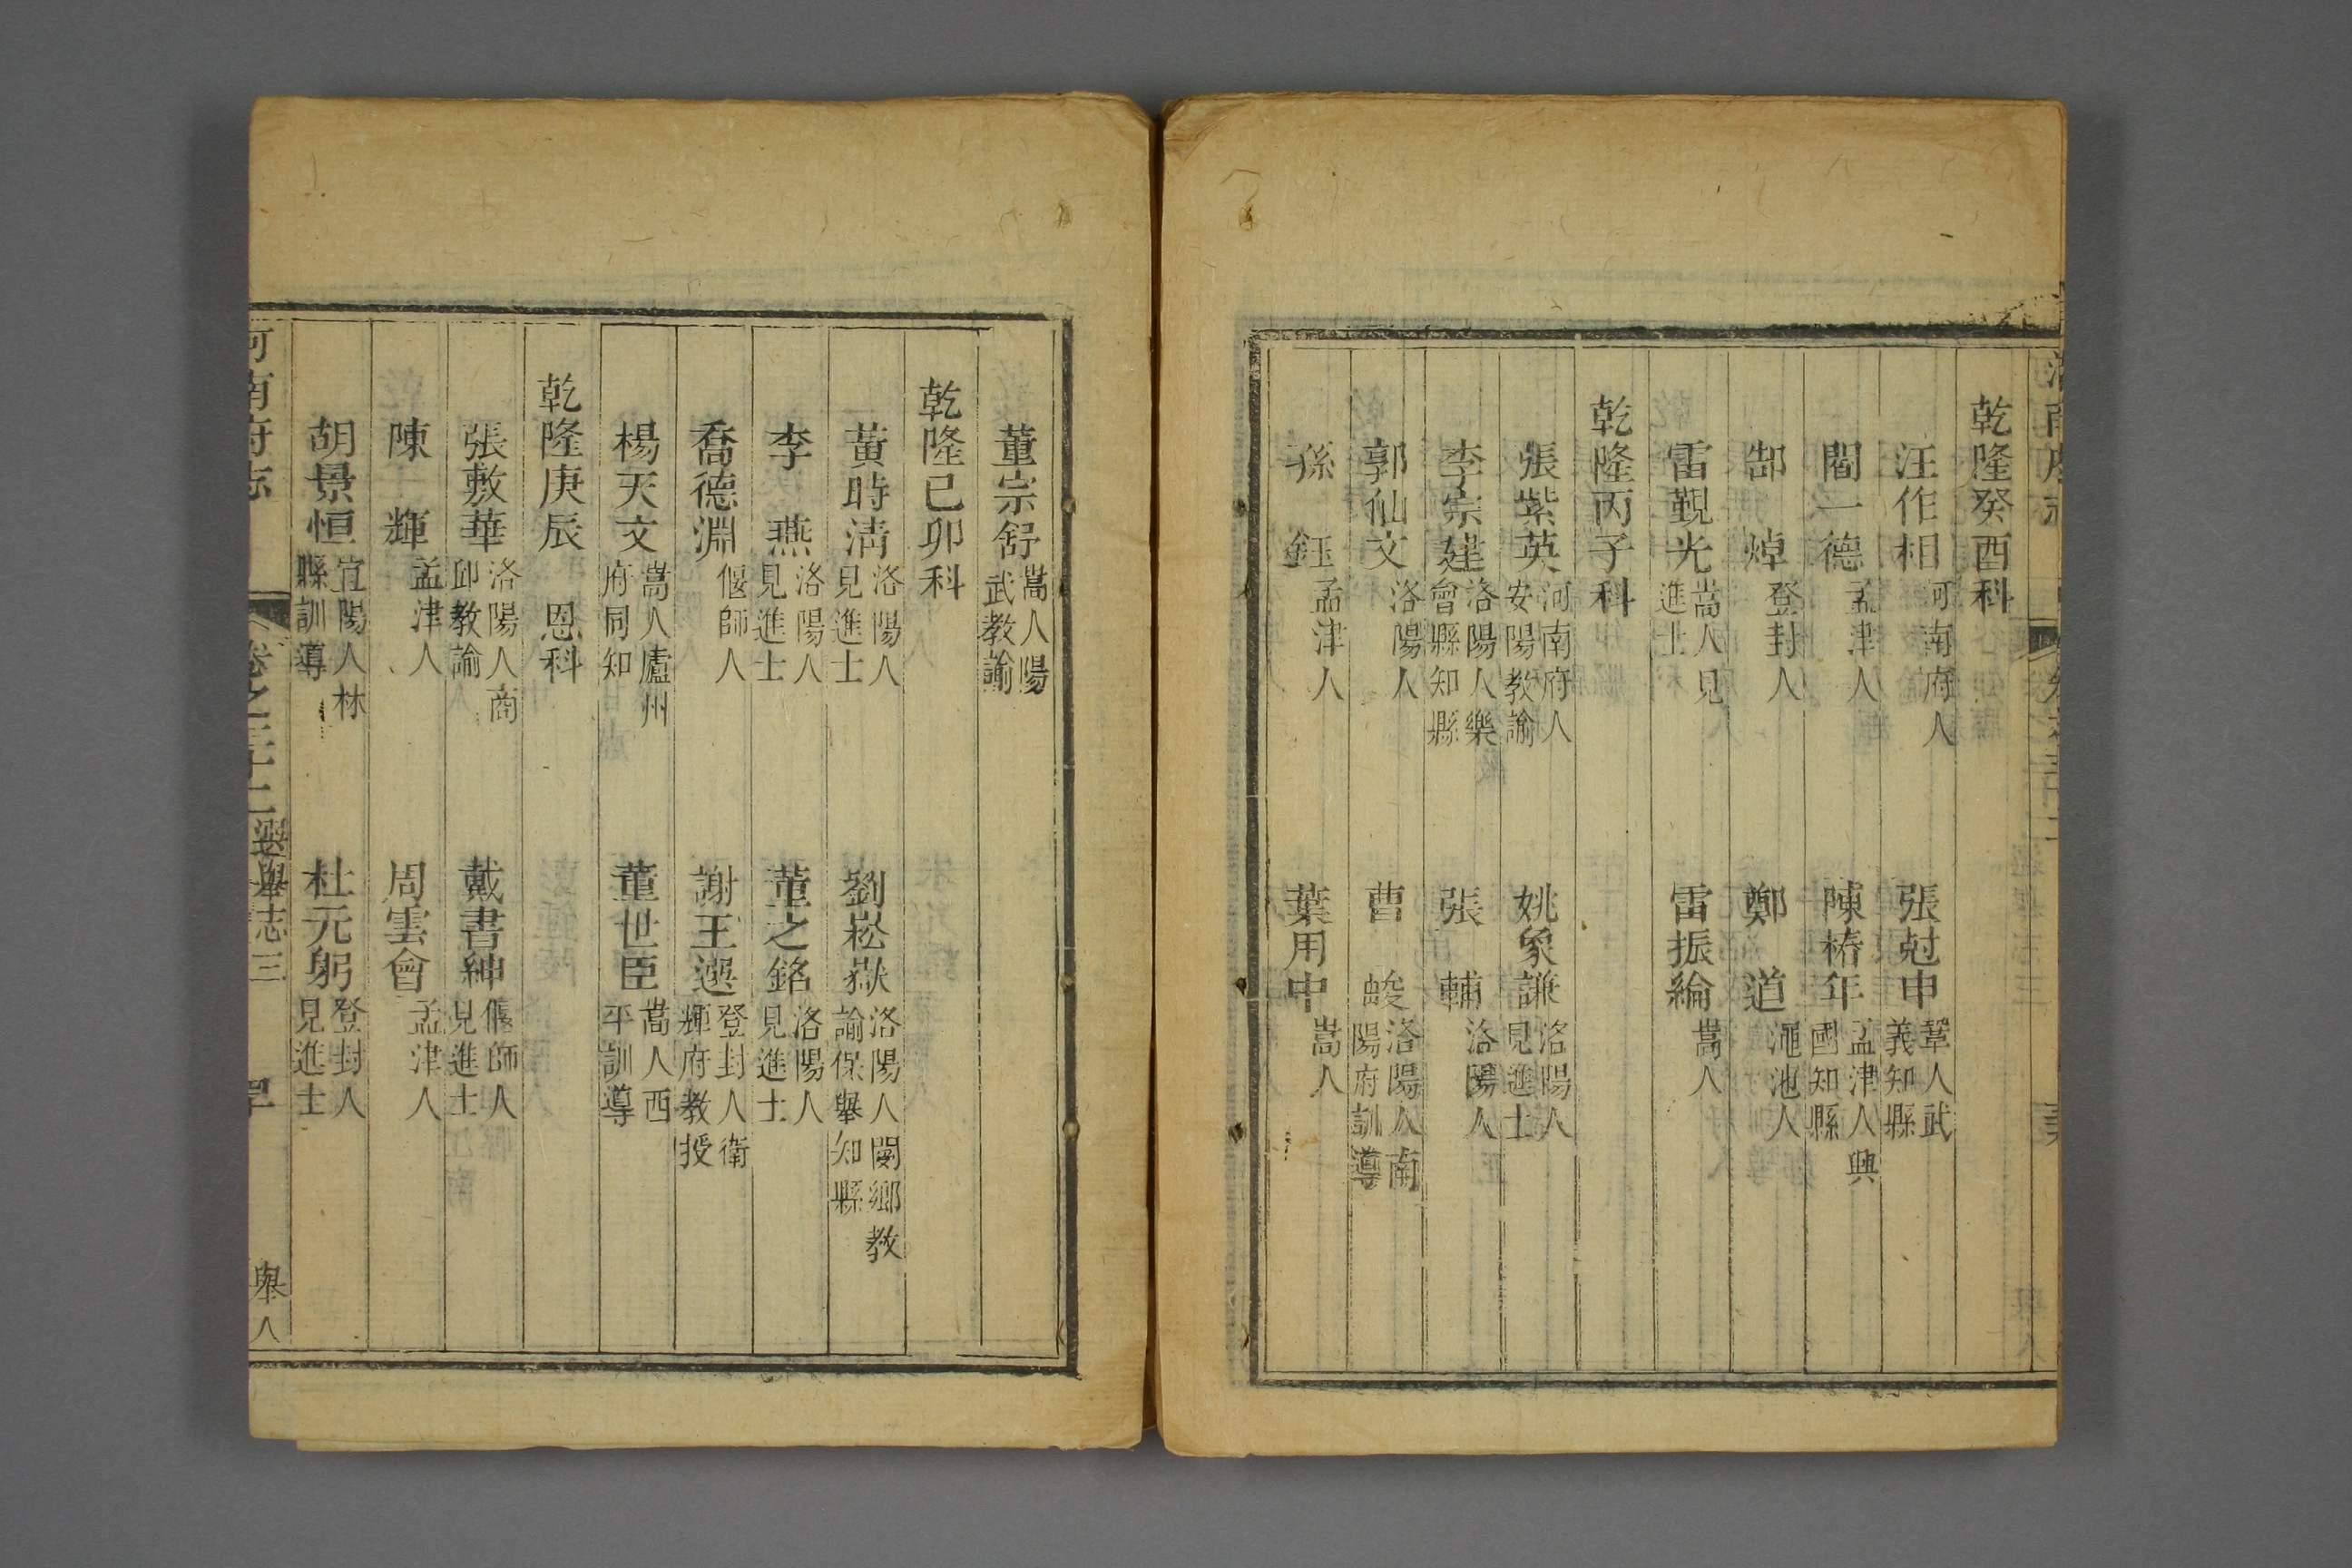 乾隆癸酉科
汪作相 河南府人 張尅申 鞏人武義知縣
閻一德 孟津人 陳椿年 孟津人興國知縣
郜焯 登封人 鄭道 澠池人
雷觐光 嵩人見進士 雷振綸 嵩人
乾隆丙子科
張紫英 河南府人安陽教諭 姚象謙 洛陽人見進士
李宗建 洛陽人樂會縣知縣 張輔 洛陽人
郭仙文 洛陽人 曹 洛陽人南陽府訓導
孫鈺 孟津人 葉用中 嵩人
董宗舒 嵩人陽武教諭
乾隆己卯科
黃時清 洛陽人見進士 劉崧嶽 洛陽人閿鄉教諭保舉知縣
李燕 洛陽人見進士 董之銘 洛陽人見進士
喬德淵 偃師人 謝王選 登封人衛輝府教授
楊天文 嵩人廬州府同知 董世臣 嵩人西平訓導
乾隆庚辰恩科
張敷華 洛陽人商邱教諭 戴書紳 偃師人見進士
陳輝 孟津人 周雲會 孟津人
胡景恒 宜陽人林縣訓導 杜元躬 登封人見進士
河南府志 卷之三十二 選舉志三 舉人